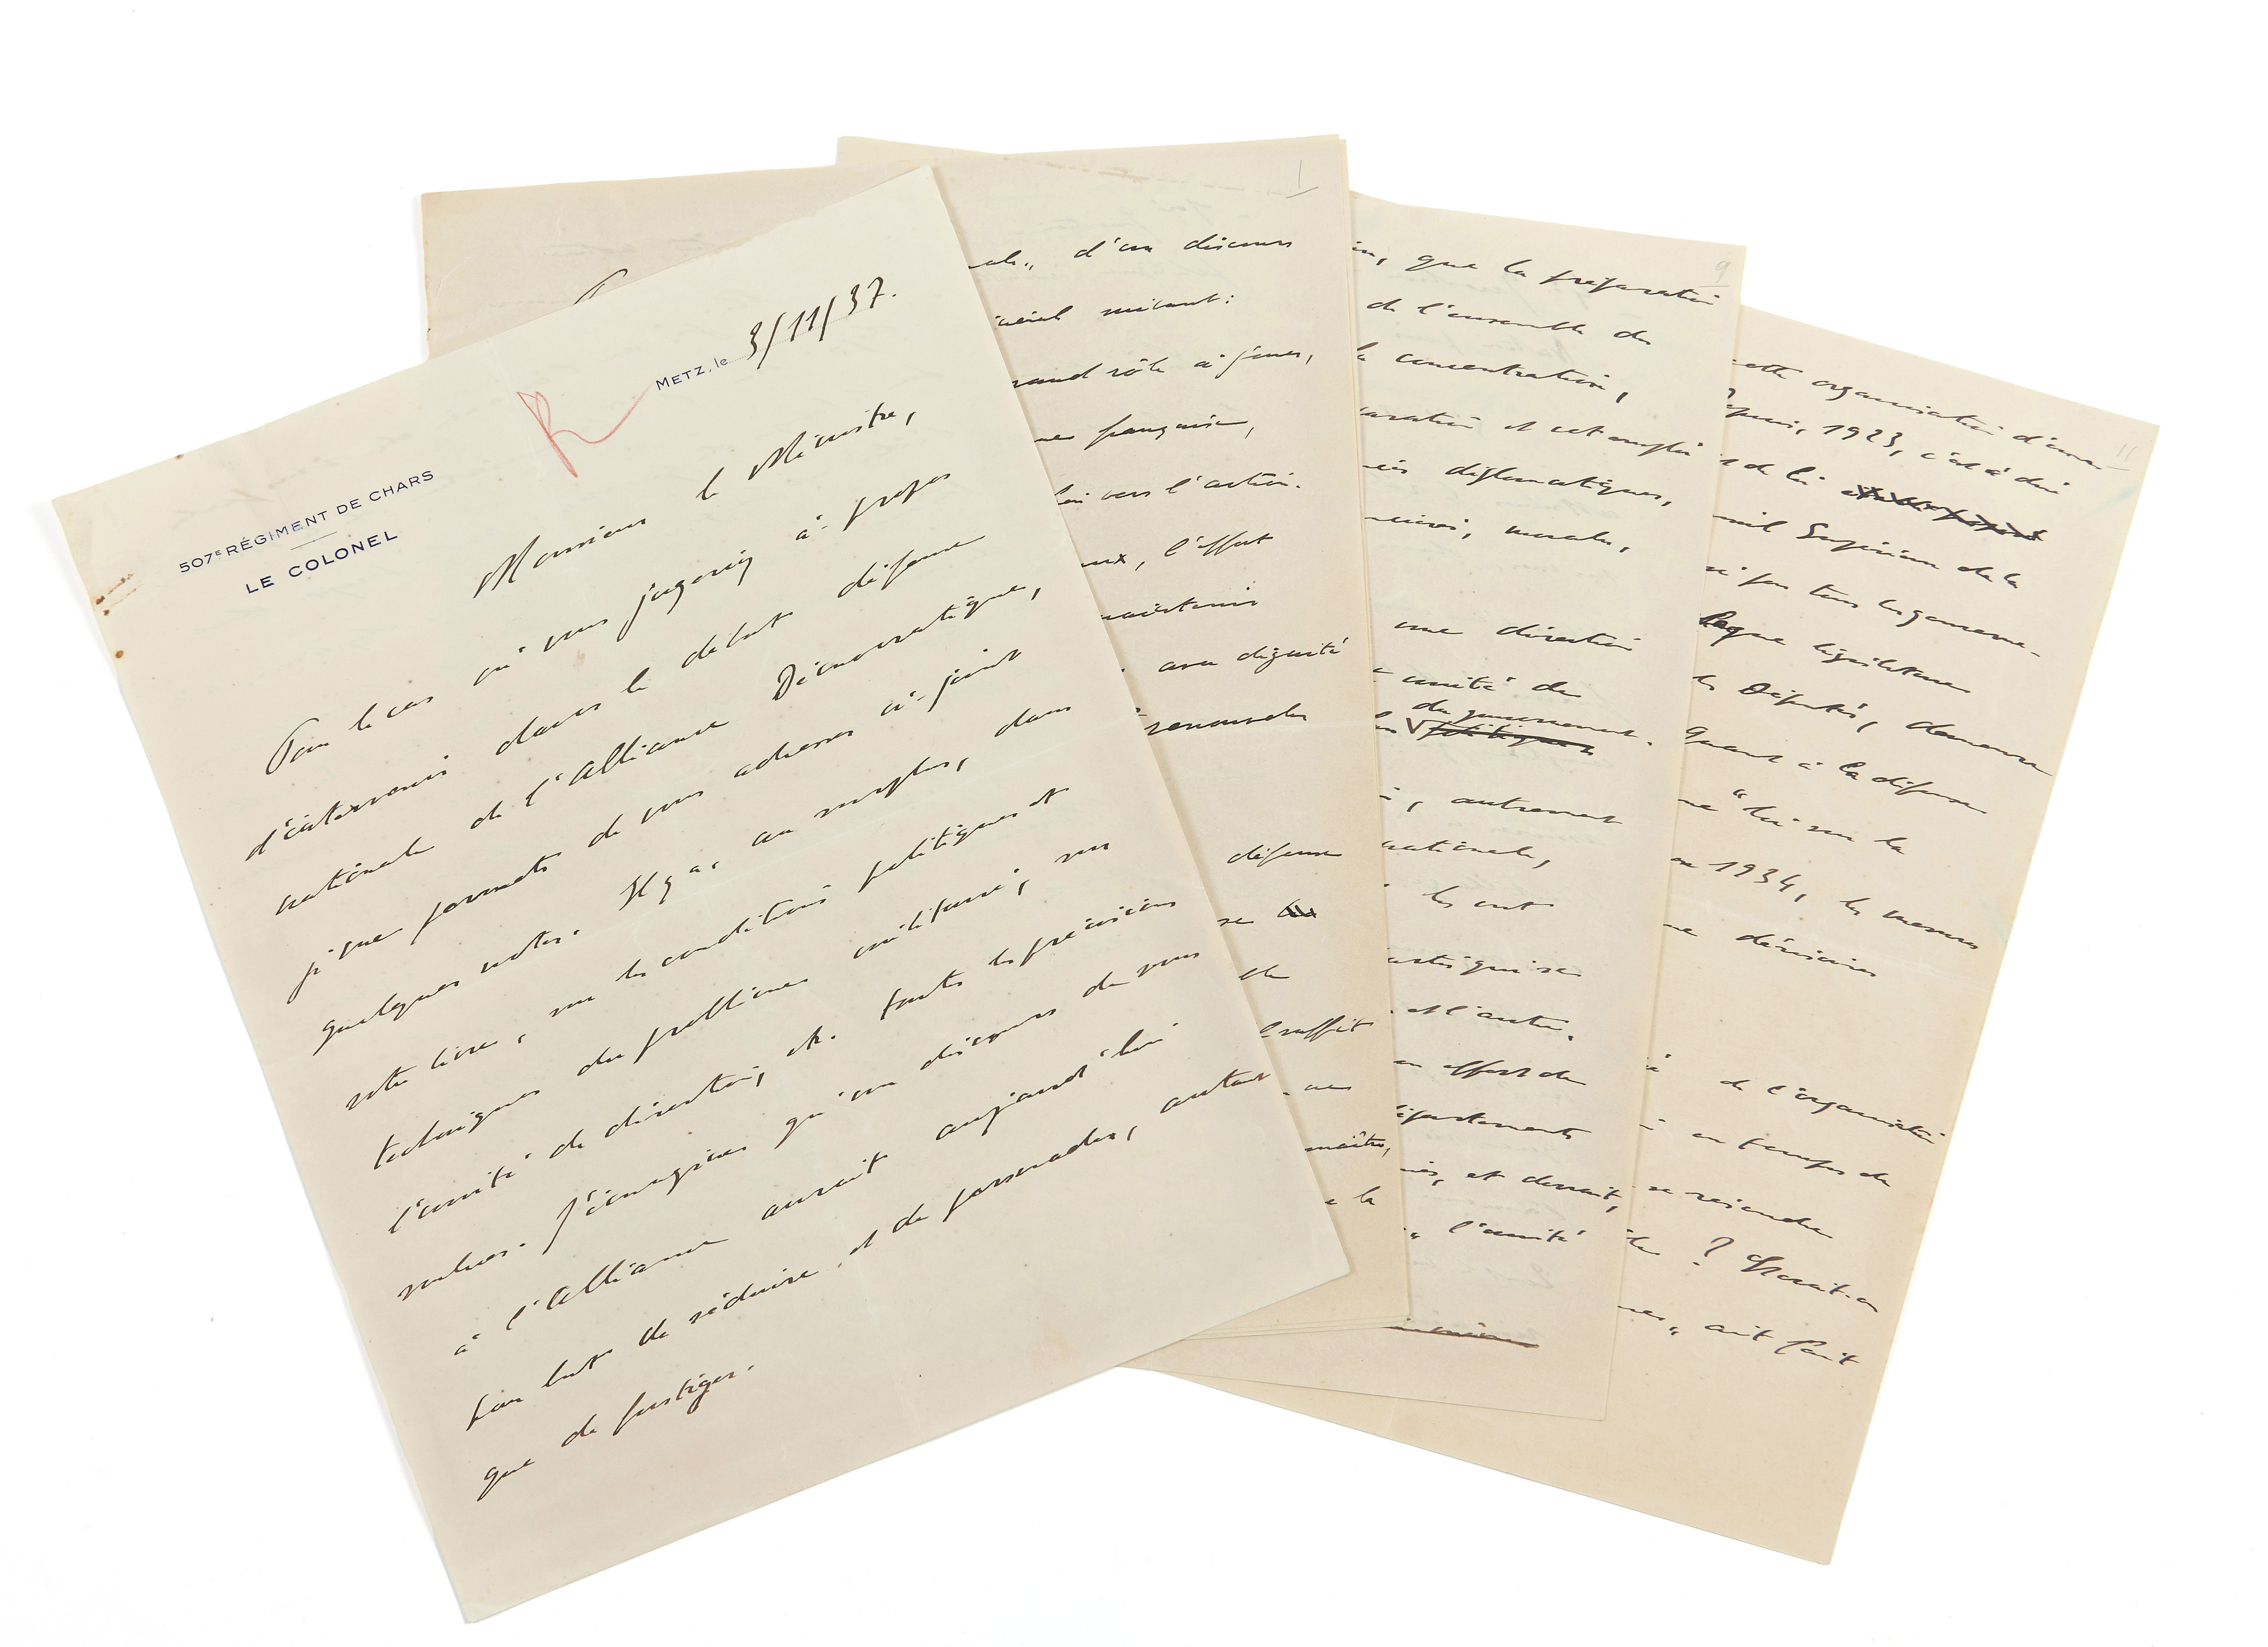 507E RÉGIMENT DE CHARS
LE COLONEL
METZ, le 3/11/37.
R
Monsieur le Ministre,
Pour le cas où vous jugeriez à propos
d'intervenir dans le débat défense
nationale de l'Alliance Démocratique,
je me permets de vous adresser ci-joint
quelques notes. Il y a, au surplus, dans
votre livre, sur les conditions politiques et
techniques du problème militaire, sur
l'unité de direction, etc. toutes les précisions
voulues. J'imagine qu'un discours de vous
à l'Alliance aurait aujourd'hui
pour but de séduire et de persuader, autant
que de fustiger.
1
d'un discours
suivant:
grand rôle à jouer,
française,
vers l'action.
l'effort
maintenir
avec dignité
renouveler
défense
se
suffit
maître,
la
9
que la préparation
de l'ensemble des
la concentration,
et cet emploi
diplomatiques,
morales,
une direction
unité de
du gouvernement.
politiques
autrement
nationale,
les ont
qui se
et l'autre.
effort de
départements
et devrait,
l'unité
11
cette organisation d'ensemble
Depuis 1923, c'est à dire
de loi
Supérieur de la
par tous les gouverne-
législature
Députés, demeure
Quant à la défense
"loi sur la
1934, les mesures
décisoires
de l'organisation
en temps de
se résoudre
? Serait-ce
ait fait